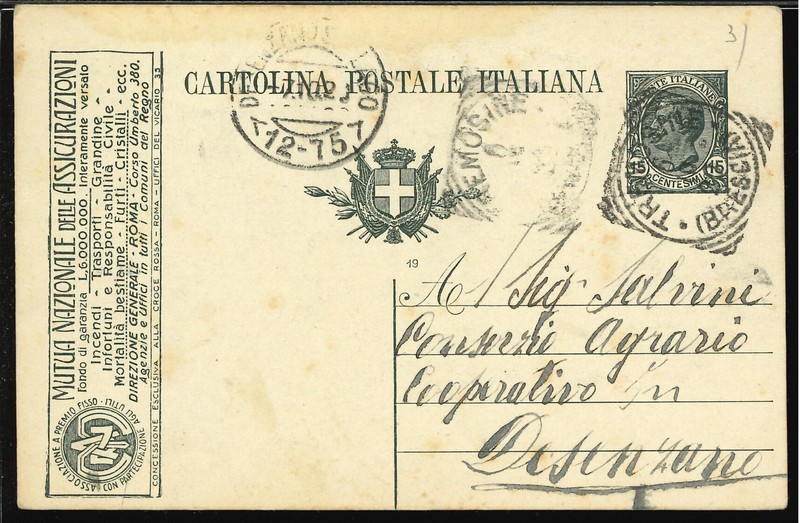 3)
CARTOLINA POSTALE ITALIANA
POSTE ITALIANE
15 15
CENTESIMI
12-75
TREMOSINE
TR
(BRESCIA)
19
A / Sig Salvini
Consorzio Agrario
Cooperativo in
Desenzano
MUTUA NAZIONALE DELLE ASSICURAZIONI
Fondo di garanzia L.6.000.000. Interamente versato
Incendi - Trasporti - Grandine -
Infortuni e Responsabilità Civile -
Mortalità bestiame - Furti - Cristalli - ecc.
DIREZIONE GENERALE - ROMA - Corso Umberto 380.
Agenzie e Uffici in tutti i Comuni del Regno
CONCESSIONE ESCLUSIVA ALLA CROCE ROSSA - ROMA - UFFICI DEL VICARIO 35
ASSOCIAZIONE A PREMIO FISSO - CON PARTECIPAZIONE AGLI UTILI